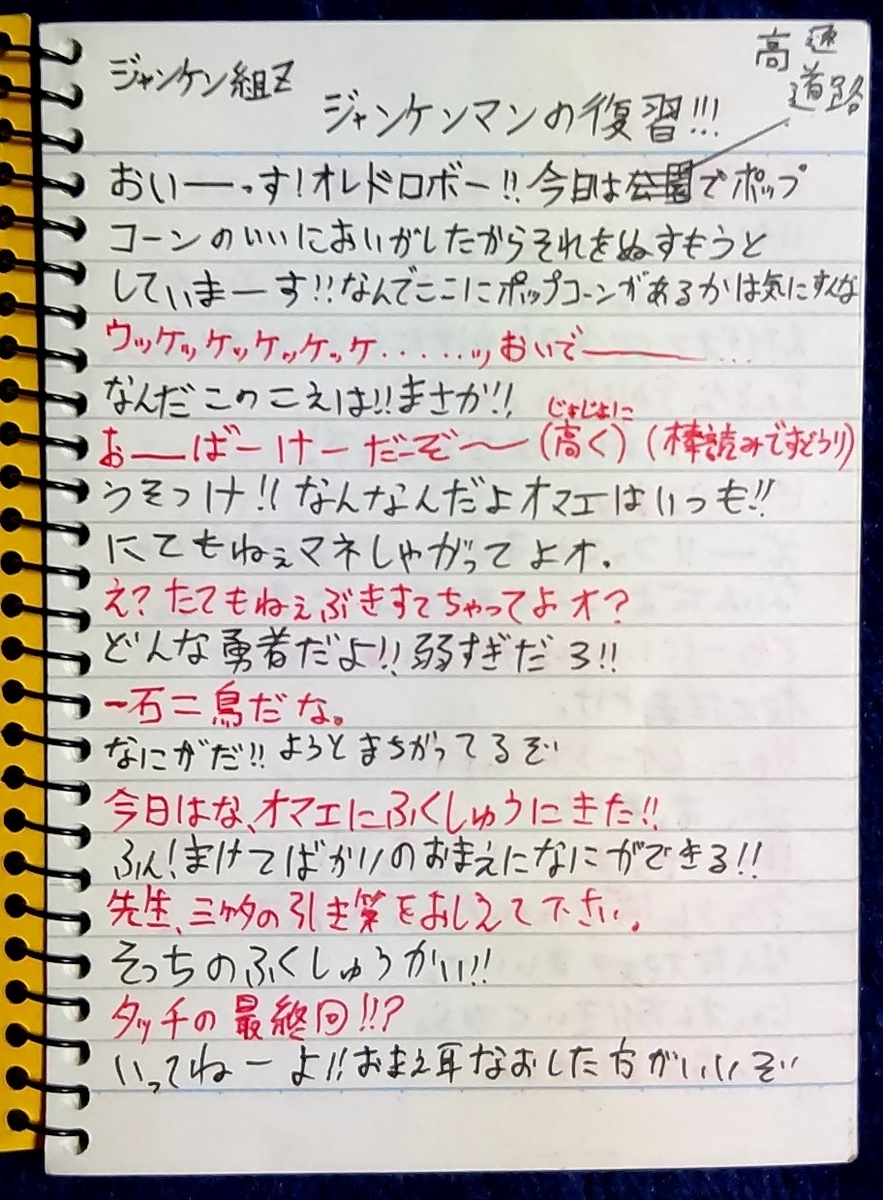 高速
道路
ジャンケン組Z
ジャンケンマンの復習!!!
おい――っす!オレドロボー!!今日は公園でポップ
コーンのいいにおいがしたからそれをぬすもうと
していまーす!!なんでここにポップコーンがあるかは気にすんな
ウッケッケッケッケッケ・・・・・ッおいで―――・・・
なんだこのこえは!!まさか!!
じょじょに
お――ばーけーだーぞ〜(高く)(棒読みですどうり)
うそつけ!!なんなんだよオマエはいつも!!
にてもねぇマネしやがってよオ.
え?たてもねぇぶきすてちゃってよオ?
どんな勇者だよ!!弱すぎだろ!!
一石二鳥だな。
なにがだ!!ようとまちがってるぞ
今日はな、オマエにふくしゅうにきた!!
ふん!まけてばかりのおまえになにができる!!
先生、三ケタの引き算をおしえて下さい。
そっちのふくしゅうかい!!
タッチの最終回!!?
いってねーよ!!おまえ耳なおした方がいいぞ